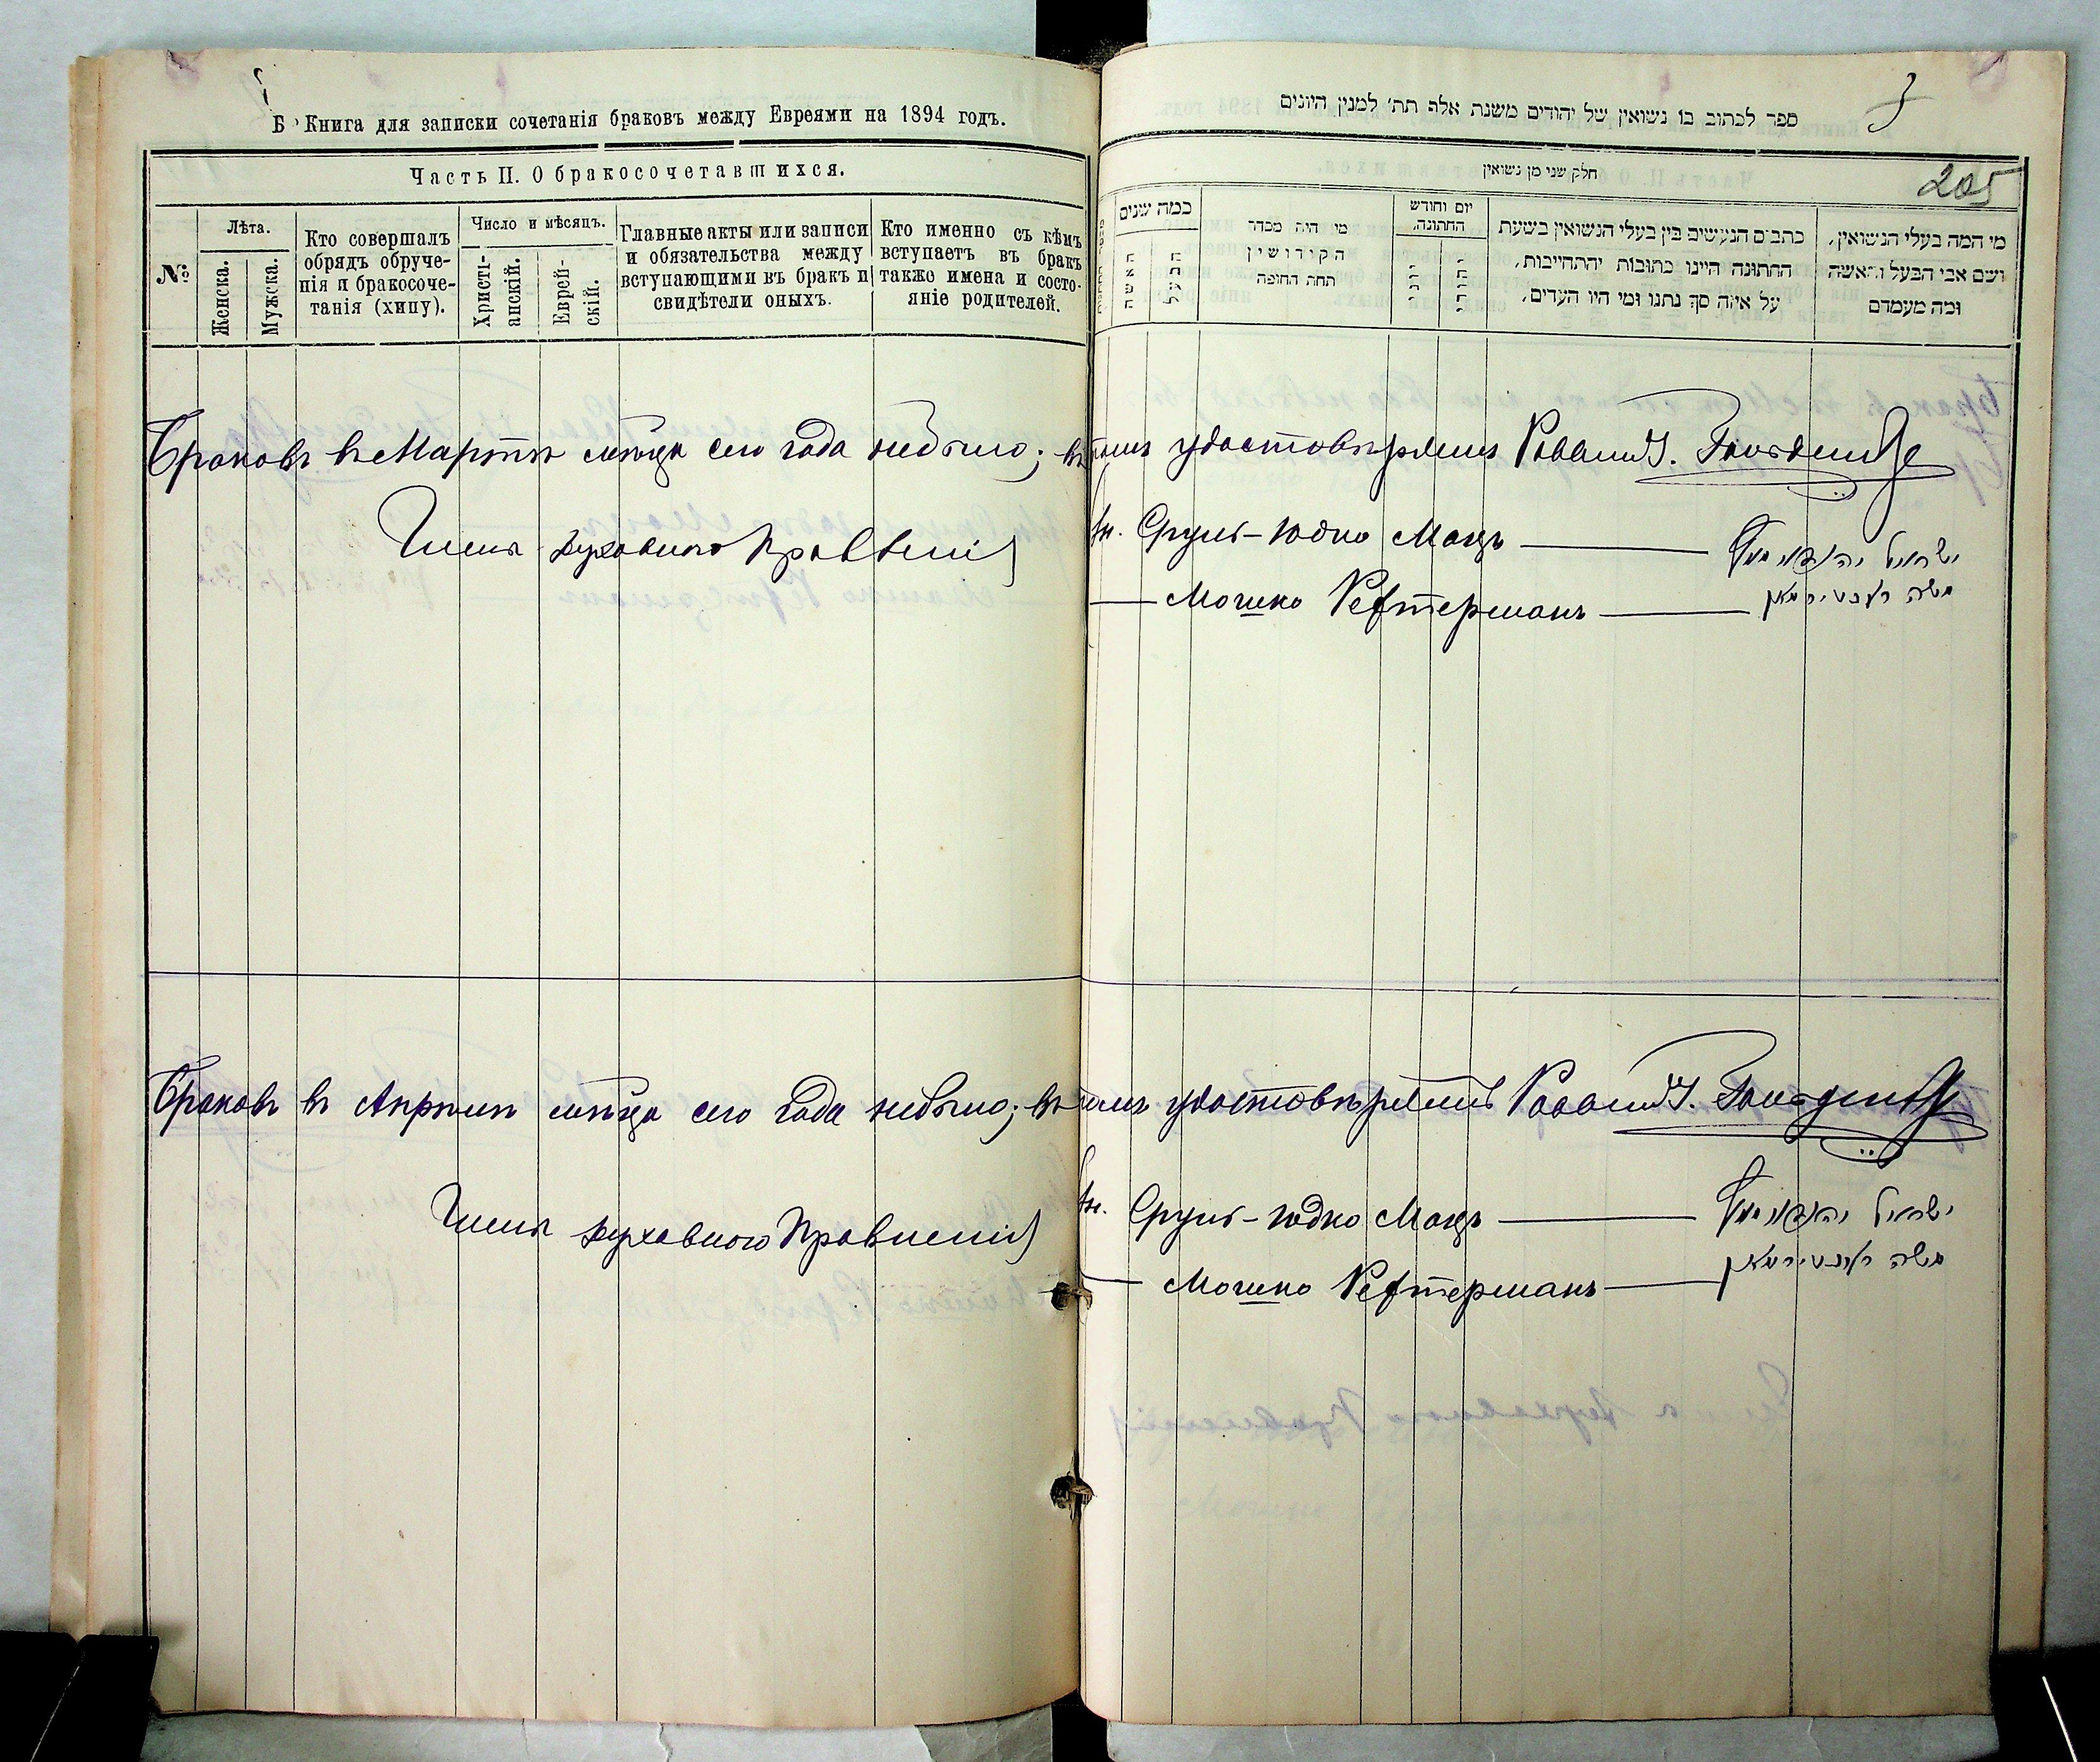 Б Книга для записки сочетанія браковъ между Евреями на 1894 годъ.
Часть II. О бракосочетавшихся.
№
Лѣта.
Женска.
Мужска.
Кто совершалъ
обрядъ обруче-
нія и бракосоче-
танія (хипу).
Число и мѣсяцъ.
Христі-
анскій.
Еврей-
скій.
Главные акты или записи
и обязательства между
вступающими въ бракъ и
свидѣтели оныхъ.
Кто именно съ кѣмъ
вступаетъ въ бракъ
также имена и состо-
яніе родителей.
3
ספר לכתוב בו נשואין של יהודים משנת אלף תת׳ למנין היונים
חלק שני מן נשואין
205
כמה שנים
האשה
הבעל
מי היה מסדר
הקידושין
תחת החופה
יום וחודש
החתונה.
כתבים הנעשים בין בעלי הנשואין בשעת
החתונה היינו כתובות יהתחייבות,
על איזה סך נתנו ומי היו העדים,
מי המה בעלי הנשואין,
ושם אבי הבעל והאשה
ומה מעמדם
Браковъ въ Мартѣ мѣсяцѣ сего года небыло; въ томъ удостовѣряемъ Раввинъ
Члены духовнаго Правленія Сруль-Юдко Мацъ
Мошко Рефтерманъ
ישראל
משה
Браковъ въ Апрѣлѣ мѣсяцѣ сего года небыло; въ томъ удостовѣряемъ Раввинъ
Члены духовнаго Правленія Сруль-Юдко Мацъ
Мошко Рефтерманъ
ישראל
משה